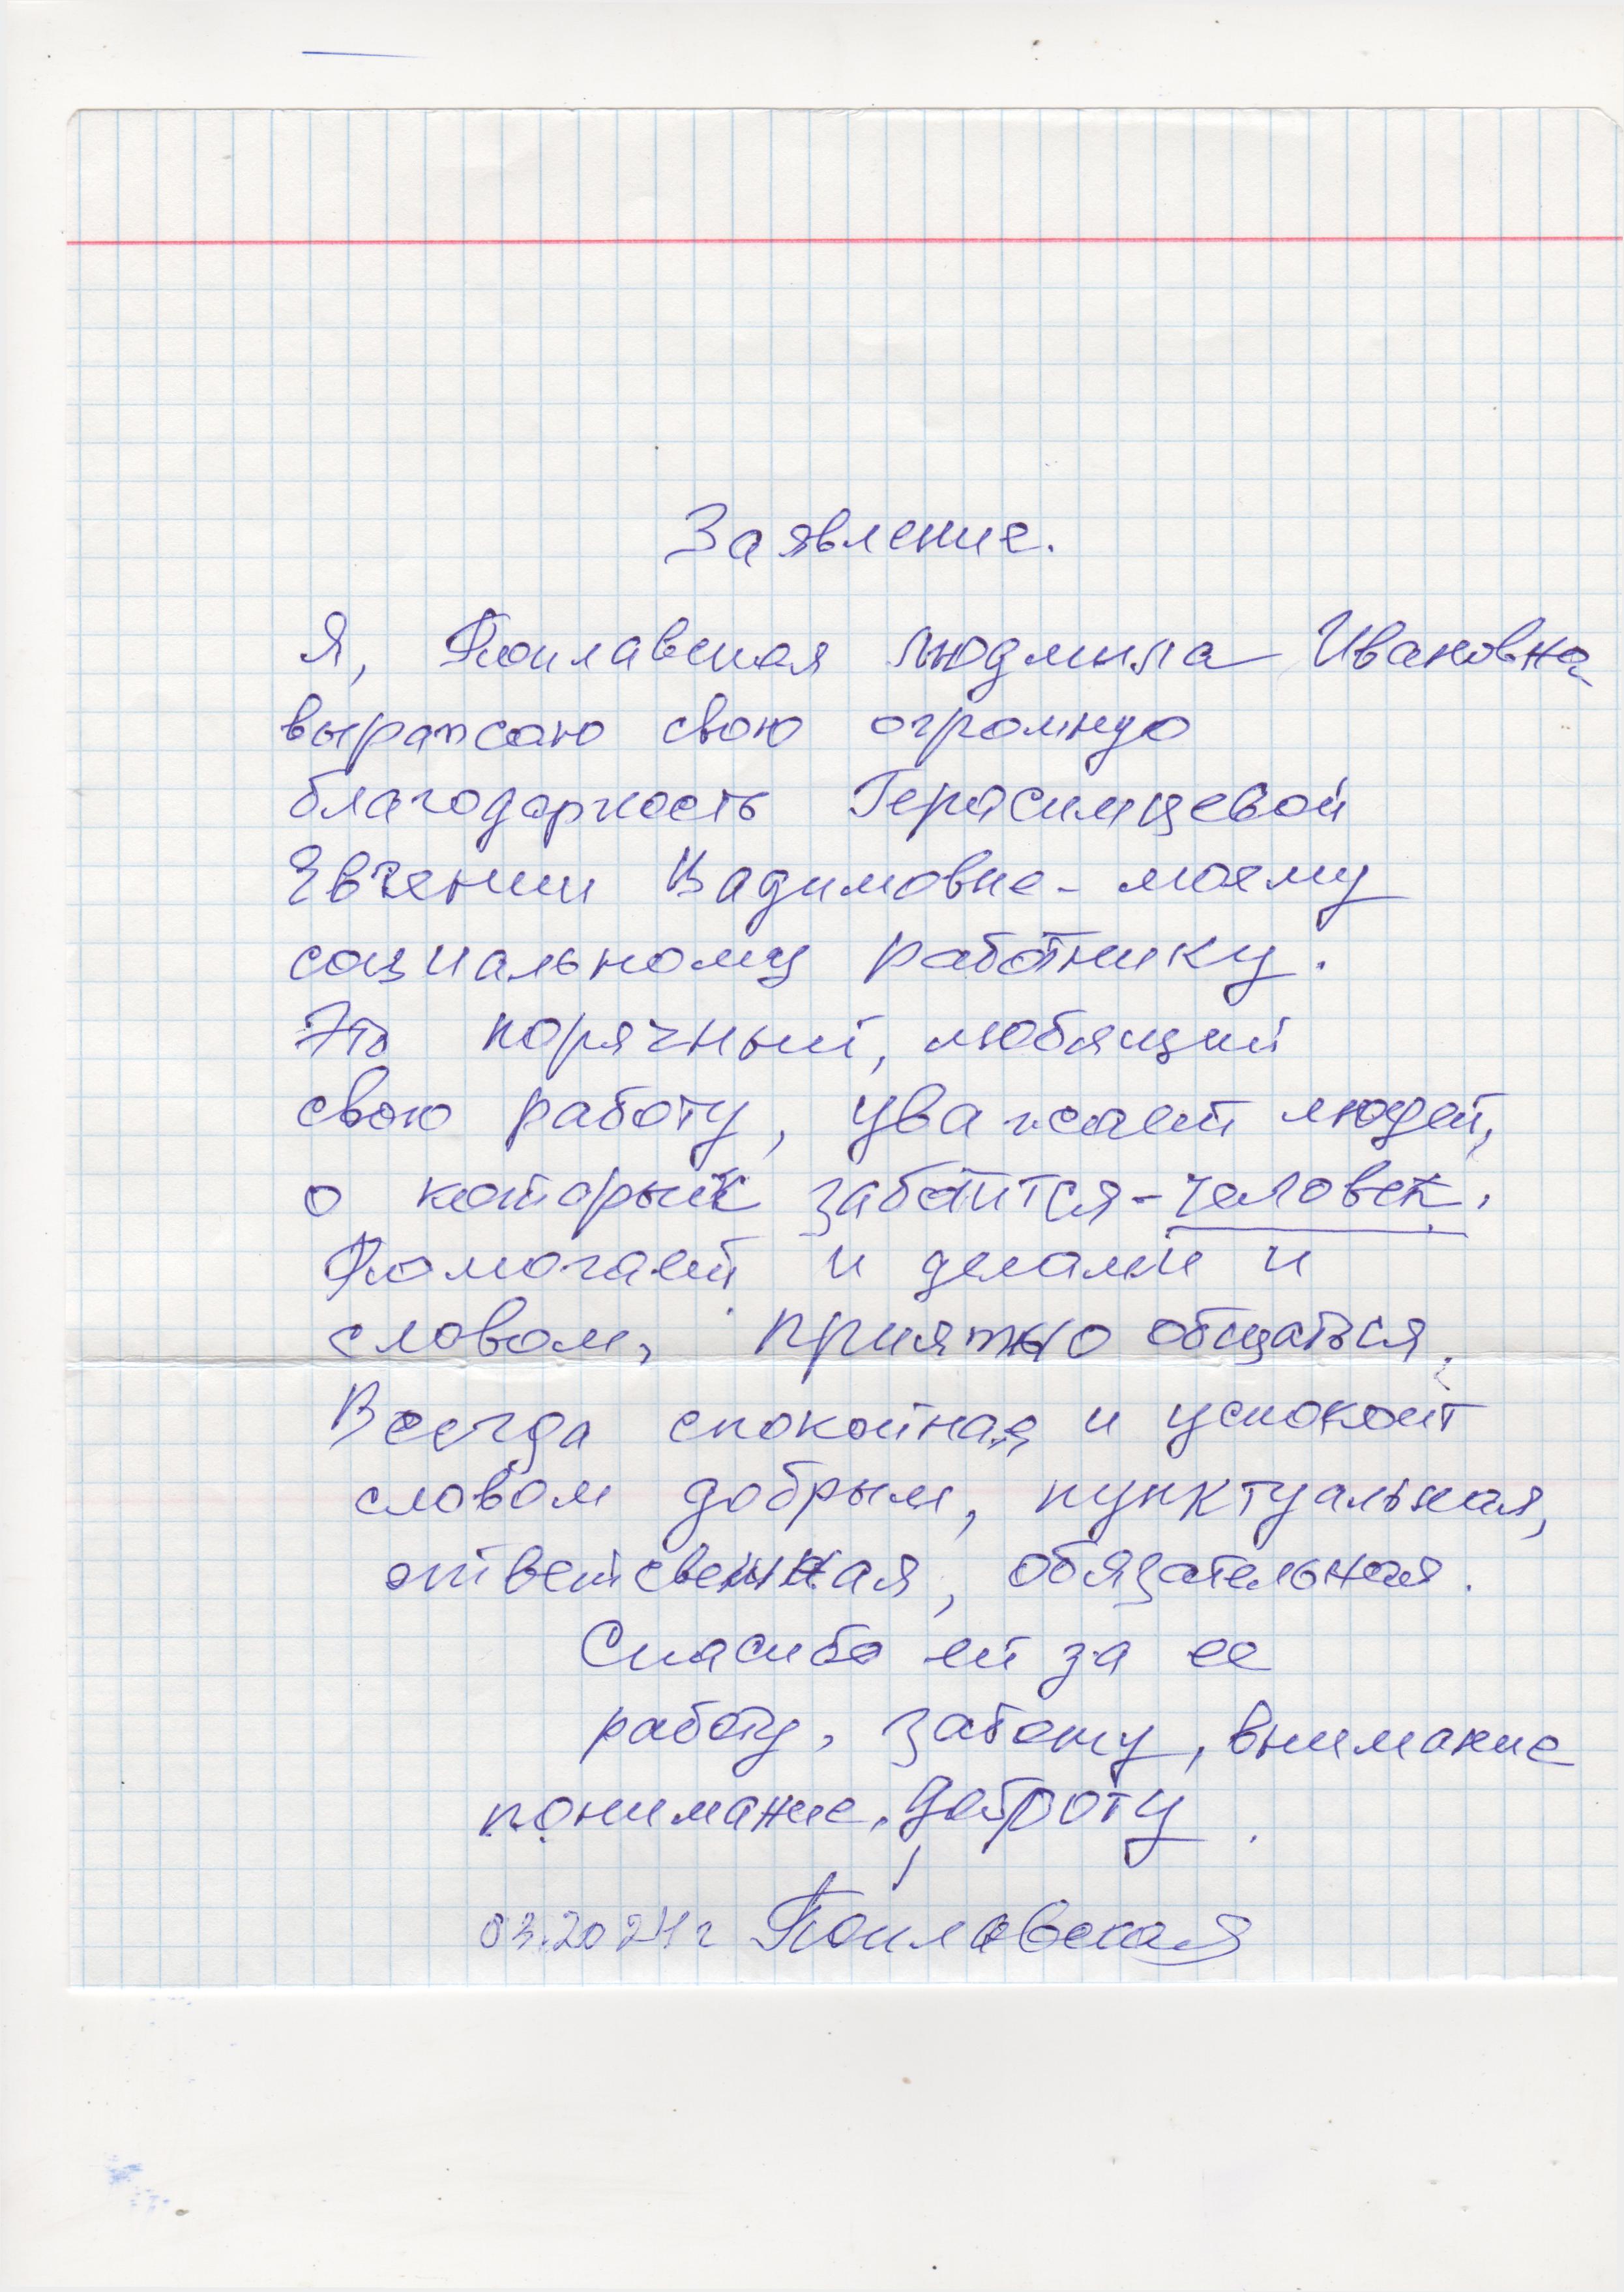 Заявление.
Я, Поплавская Людмила Ивановна
выражаю свою огромную
благодарность Герасимцевой
Евгении Вадимовне - моему
социальному работнику.
Это порячный, любящий
свою работу, уважает людей,
о которых заботится - человек.
Помогает и делами и
словом, приятно общаться.
Всегда спокойная и успокоит
словом добрым, пунктуальная,
ответсвенная, обязательная.
Спасибо ей за ее
работу, заботу, внимание
понимание, доброту.
03.2024 г Поплавская